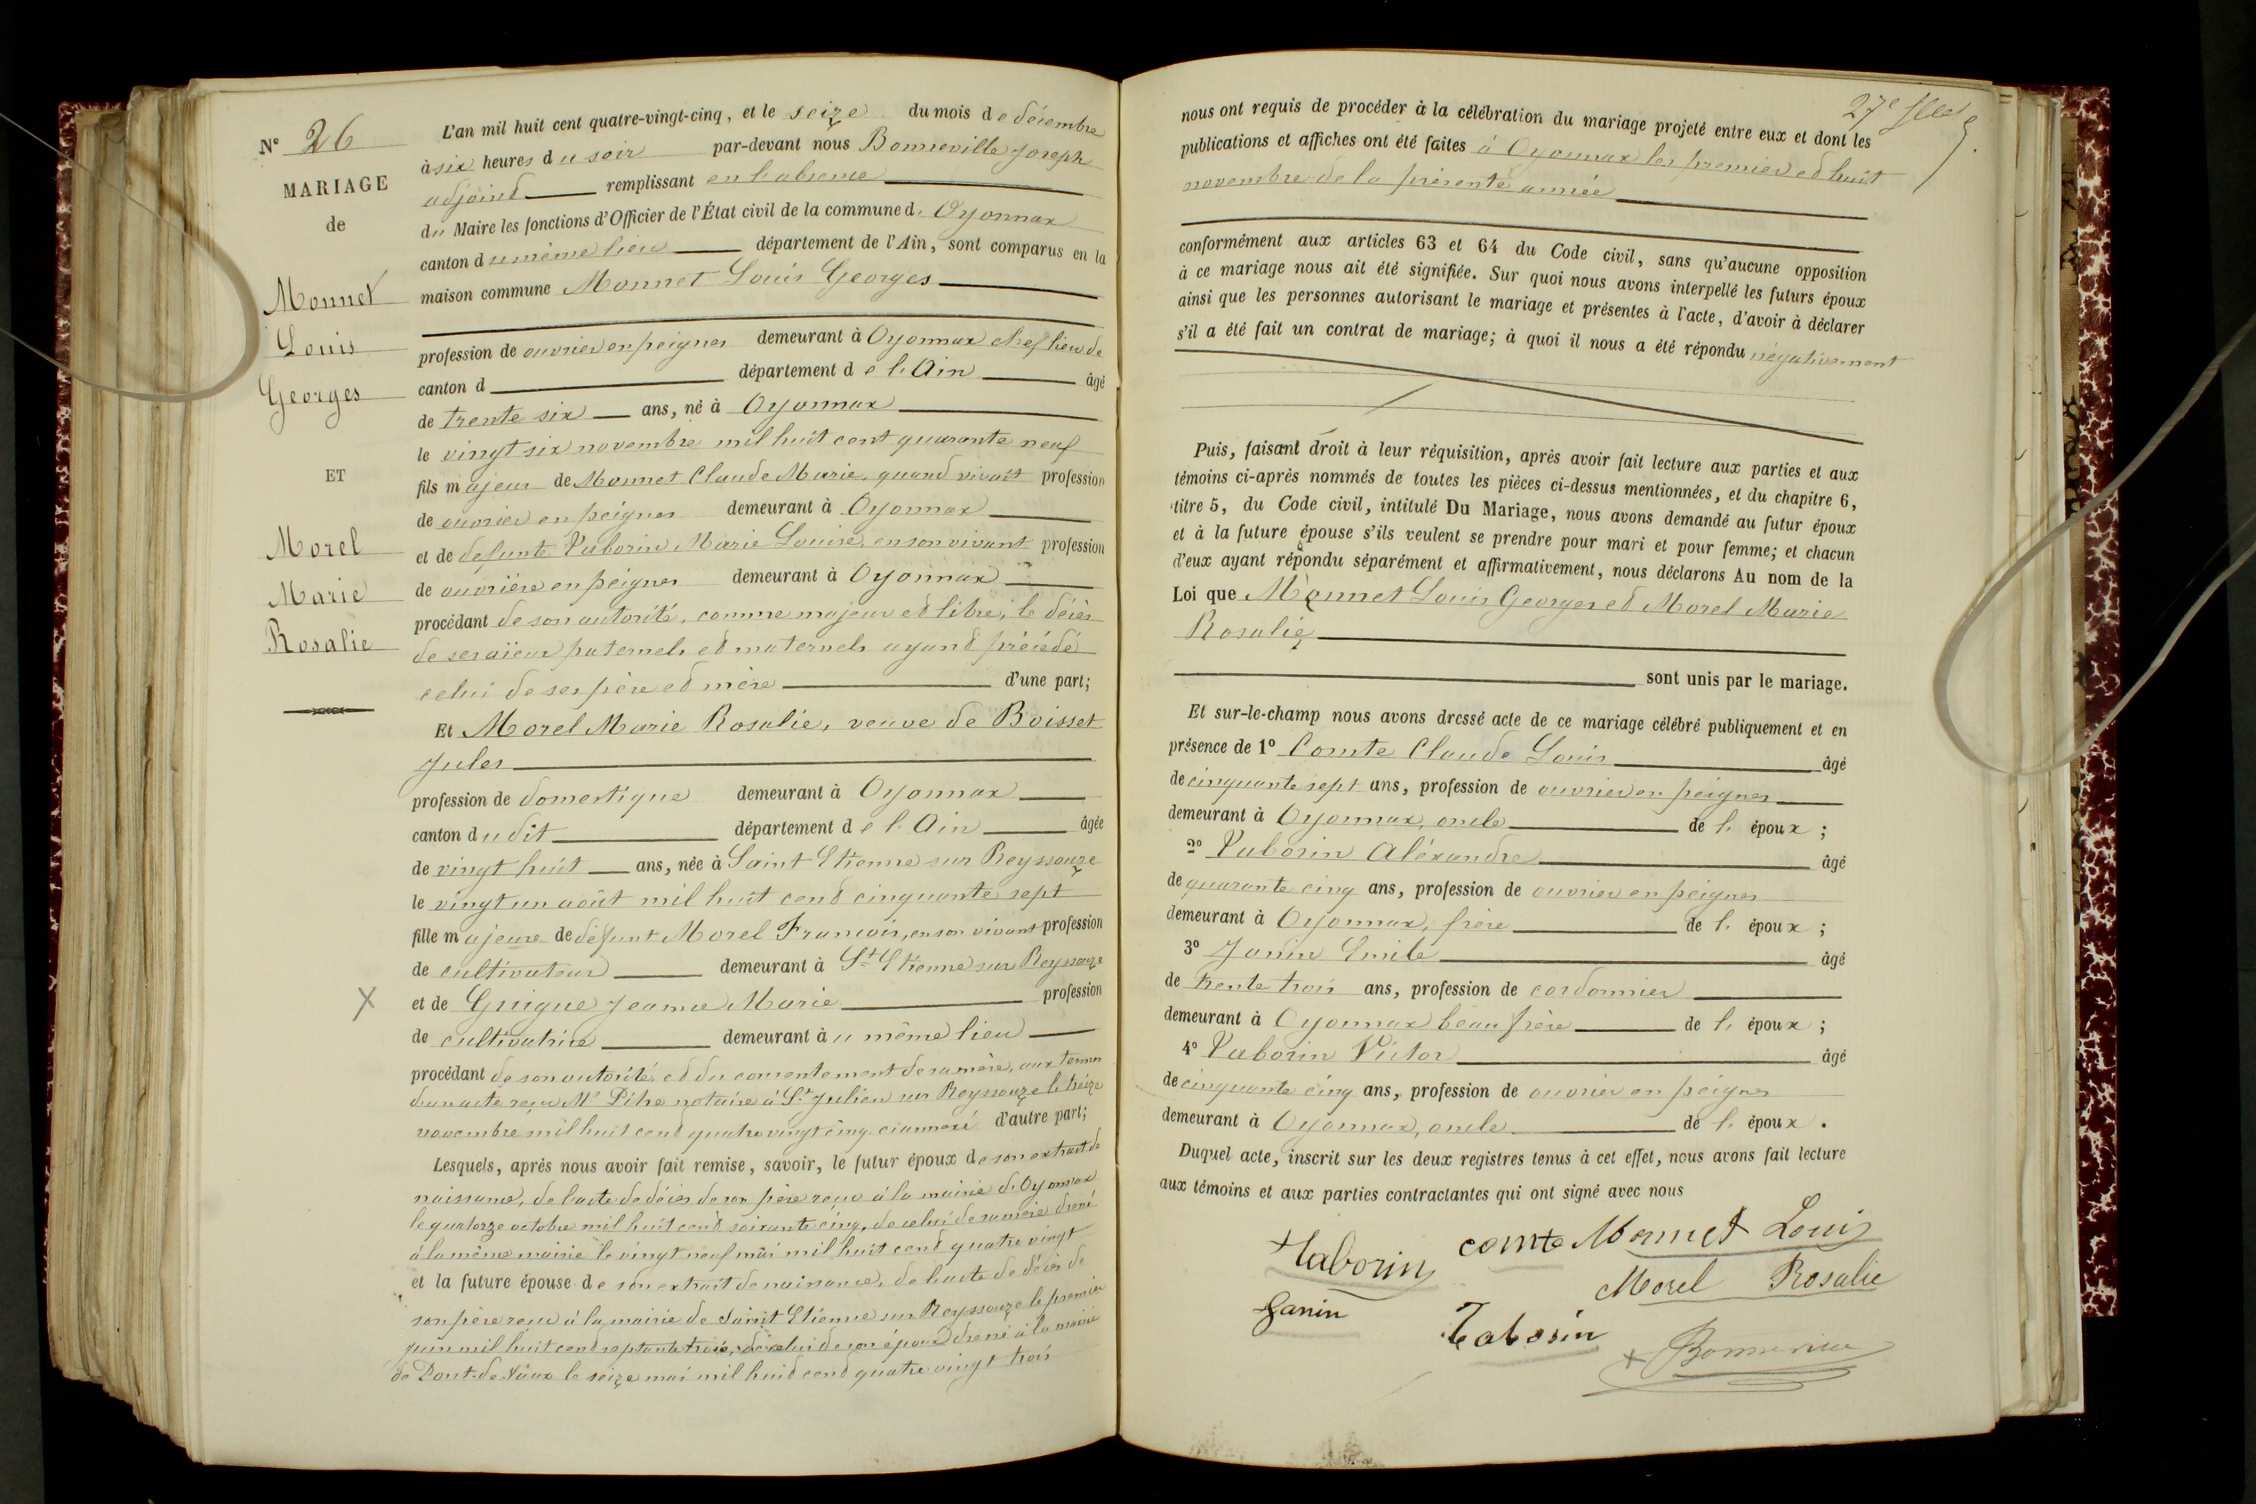 N° 26
MARIAGE
de
Monnet
Louis
Georges
ET
Morel
Marie
Rosalie
L'an mil huit cent quatre-vingt-cinq, et le seize du mois de décembre
à six heures du soir par-devant nous Bonneville Joseph
adjoint remplissant en l'absence
du Maire les fonctions d'Officier de l'État civil de la commune d. Oyonnax
canton du même lieu département de l'Ain, sont comparus en la
maison commune Monnet Louis Georges
profession de ouvrier en peignes demeurant à Oyonnax chef lieu de
canton d département de l'Ain âgé
de trente six ans, né à Oyonnax
le vingt six novembre mil huit cent quarante neuf
fils majeur de Monnet Claude Marie, quand vivait profession
de ouvrier en peignes demeurant à Oyonnax
et de defunte Taborin Marie Louise, en son vivant profession
de ouvrière en peignes demeurant à Oyonnax
procédant de son autorité, comme majeur et libre, le décès
de ses aïeux paternels et maternels ayant précédé
celui de ses père et mère d'une part;
Et Morel Marie Rosalie, veuve de Boisset
Jules
profession de domestique demeurant à Oyonnax
canton dudit département de l'Ain âgée
de vingt huit ans, née à Saint Etienne sur Reyssouze
le vingt un août mil huit cent cinquante sept
fille majeure de défunt Morel François, en son vivant profession
de cultivateur demeurant à St Etienne sur Reyssouze
X et de Guigue Jeanne Marie profession
de cultivatrice demeurant au même lieu
procédant de son autorité et du consentement de sa mère, aux termes
d'un acte reçu Me Pitre notaire à St Julien sur Reyssouze le treize
novembre mil huit cent quatre vingt cinq ci annexé d'autre part;
Lesquels, après nous avoir fait remise, savoir, le futur époux de son extrait de
naissance, de l'acte de décès de son père reçu à la mairie d'Oyonnax
le quatorze octobre mil huit cent soixante cinq, de celui de sa mère dressé
à la même mairie le vingt neuf mai mil huit cent quatre vingt
et la future épouse de son extrait de naissance, de l'acte de décès de
son père reçu à la mairie de Saint Etienne sur Reyssouze le premier
juin mil huit cent septante trois, de celui de son époux dressé à la mairie
de Pont-de-Vaux le seize mai mil huit cent quatre vingt trois
27e
nous ont requis de procéder à la célébration du mariage projeté entre eux et dont les
publications et affiches ont été faites à Oyonnax les premier et huit
novembre de la présente année
conformément aux articles 63 et 64 du Code civil, sans qu'aucune opposition
à ce mariage nous ait été signifiée. Sur quoi nous avons interpellé les futurs époux
ainsi que les personnes autorisant le mariage et présentes à l'acte, d'avoir à déclarer
s'il a été fait un contrat de mariage; à quoi il nous a été répondu négativement
Puis, faisant droit à leur réquisition, après avoir fait lecture aux parties et aux
témoins ci-après nommés de toutes les pièces ci-dessus mentionnées, et du chapitre 6,
titre 5, du Code civil, intitulé Du Mariage, nous avons demandé au futur époux
et à la future épouse s'ils veulent se prendre pour mari et pour femme; et chacun
d'eux ayant répondu séparément et affirmativement, nous déclarons Au nom de la
Loi que Monnet Louis Georges et Morel Marie
Rosalie
sont unis par le mariage.
Et sur-le-champ nous avons dressé acte de ce mariage célébré publiquement et en
présence de 1° Comte Claude Louis âgé
de cinquante sept ans, profession de ouvrier en peignes
demeurant à Oyonnax, oncle de l. époux;
2° Taborin Aléxandre âgé
de quarante cinq ans, profession de ouvrier en peignes
demeurant à Oyonnax, frère de l. époux;
3° Janin Emile âgé
de trente trois ans, profession de cordonnier
demeurant à Oyonnax beau frère de l. époux;
4° Taborin Victor âgé
de cinquante cinq ans, profession de ouvrier en peignes
demeurant à Oyonnax, oncle de l. époux.
Duquel acte, inscrit sur les deux registres tenus à cet effet, nous avons fait lecture
aux témoins et aux parties contractantes qui ont signé avec nous
Taborin comte Monnet Louis
Morel Rosalie
Janin Taborin